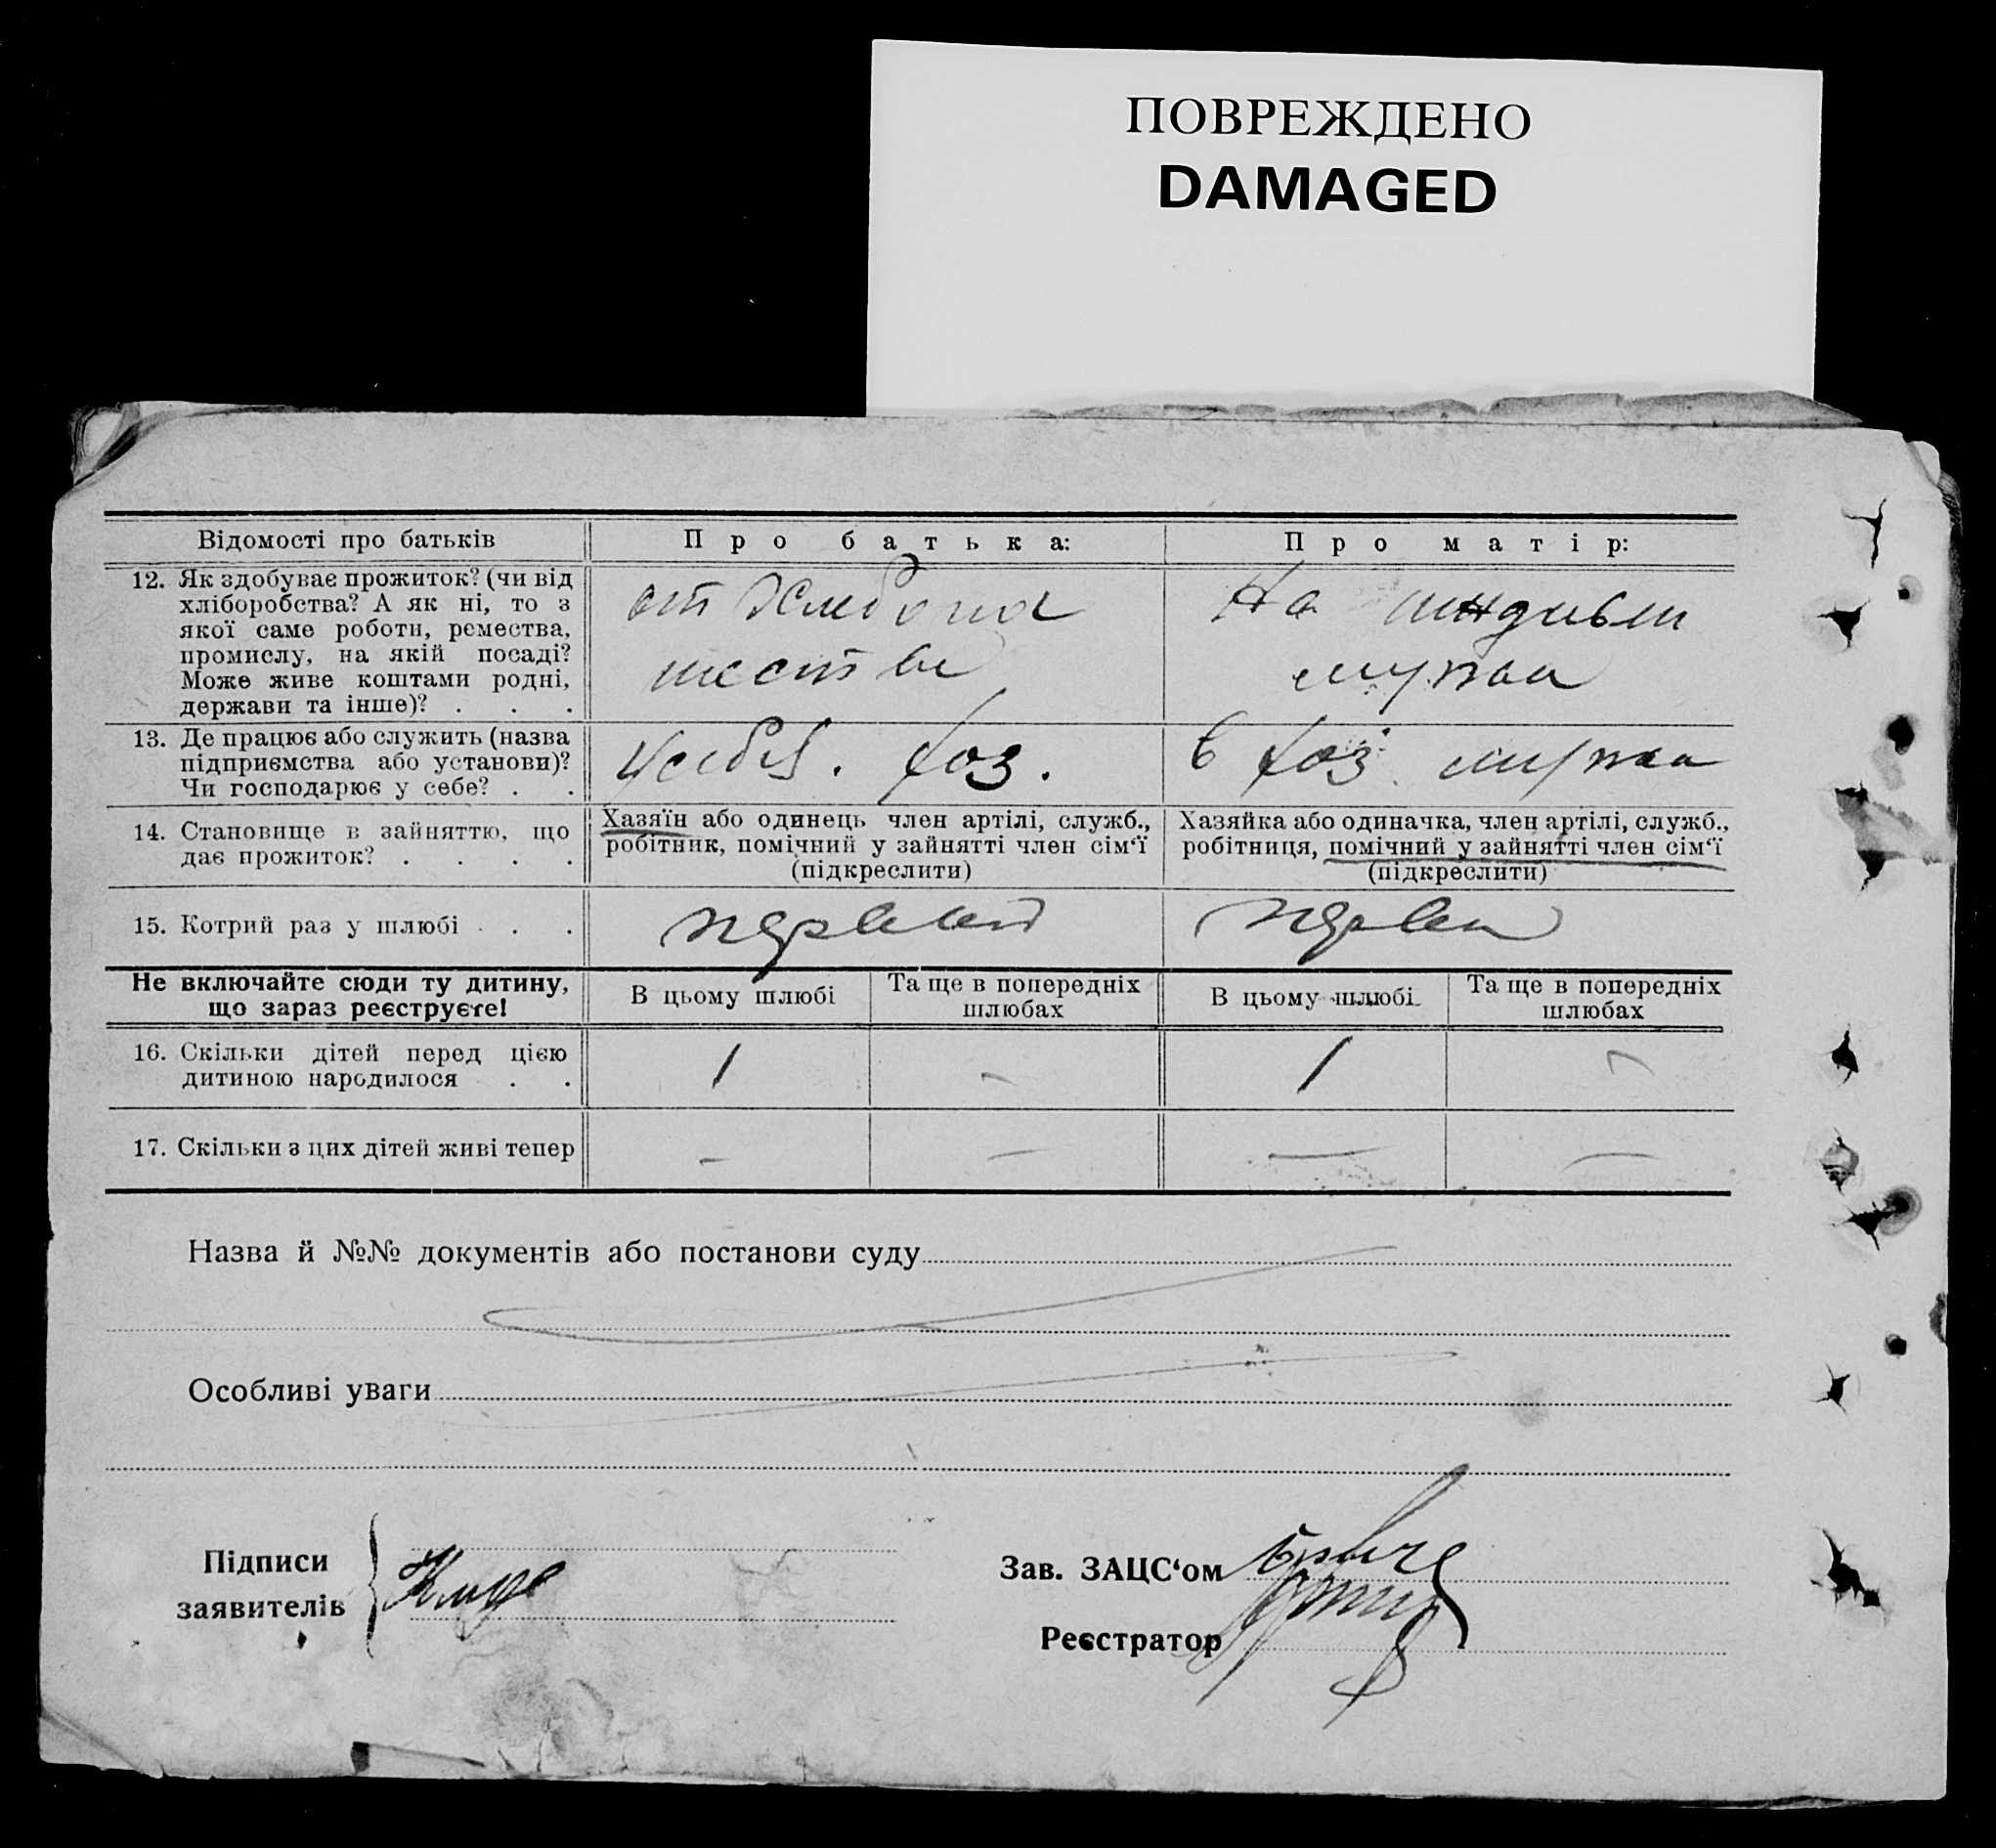 ПОВРЕЖДЕНО
DAMAGED
Відомості про батьків
Про батька:
Про матір:
12. Як здобуває прожиток? (чи від
хліборобства? А як ні, то з
якої саме роботи, ремества,
промислу, на якій посаді?
Може живе коштами родні,
держави та інше)? . . .
от Хлебопа
шества
На иждивен
мужа
13. Де працює або служить (назва
підприємства або установи)?
Чи господарює у себе? . .
у себя. хоз.
в хоз. мужа
14. Становище в зайняттю, що
дає прожиток? . . . .
Хазяїн або одинець член артілі, служб.,
робітник, помічний у зайнятті член сім‘ї
(підкреслити)
Хазяйка або одиначка, член артілі, служб.,
робітниця, помічний у зайнятті член сім‘ї
(підкреслити)
15. Котрий раз у шлюбі . . .
первый
Не включайте сюди ту дитину,
що зараз реєструєте!
В цьому шлюбі
Та ще в попередніх
шлюбах
В цьому шлюбі
Та ще в попередніх
шлюбах
16. Скільки дітей перед цією
дитиною народилося . .
1
-
1
-
17. Скільки з цих дітей живі тепер
-
-
-
-
Назва й №№ документів або постанови суду
Особливі уваги
Підписи
заявителів
Зав. ЗАЦС‘ом
Реєстратор